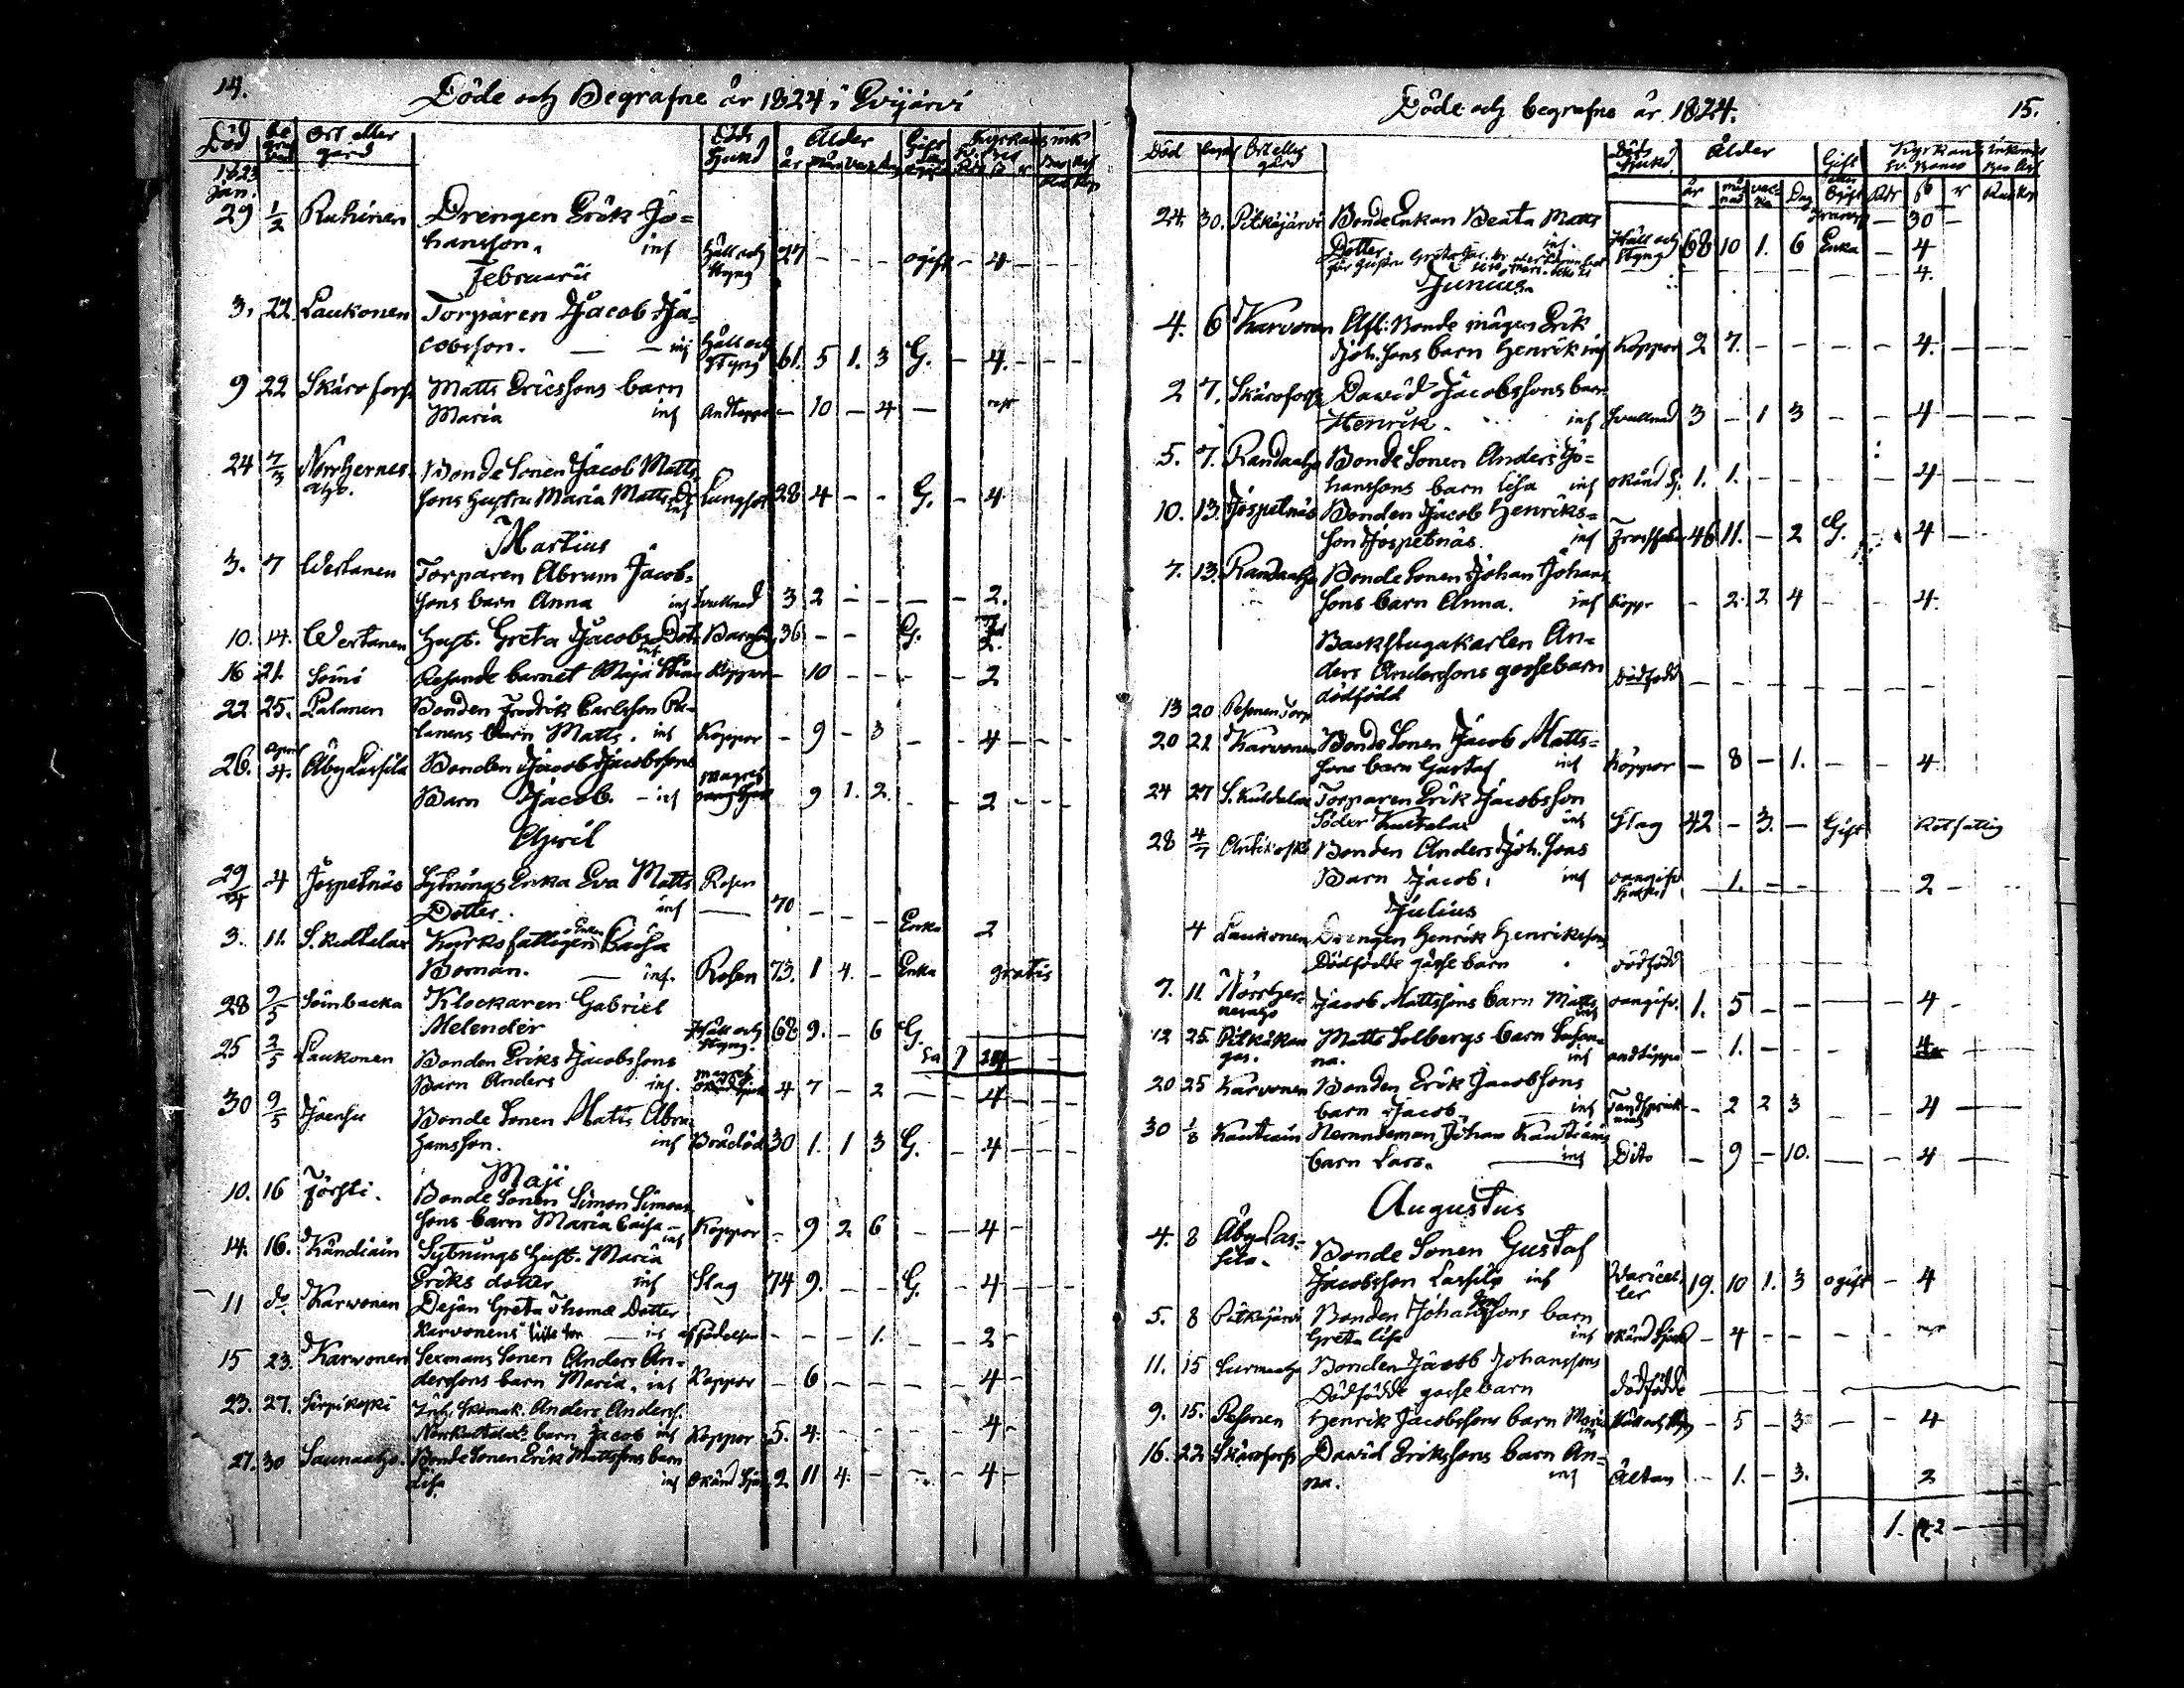 14.
Döde och Begrafne år 1824 i Evijärvi
Död be graf ven Ort eller gård Döds Sjukd Ålder Gift eller ogift
år mån Dag
Jan.
29 1/2 Ruhinen Drengen Erik Jo=
hansson. inf Håll och Styng 27 – – – ogift – 4 – –
Februarii
3. 22 Laukonen Torparen Jacob Ja=
cobsson. — — inf Håll och Styng 61. 5 1. 3 G. – 4. – – –
9 22 Skäro fors Matts Ericssons barn
Maria inf Andtäppa – 10 – 4 –
24 7/3 Norrhernes= Bonde Sonen Jacob Matts
aho. Sons Hustru Maria Matts Dr inf Lungsot 28 4 – – G. – 4
Martius
3. 7 Wertanen Torparen Abram Jacob=
Sons barn Anna inf Svullnad 3 2 – – – – 2.
10. 14. Wertanen Hust. Greta Jacobs Dotr inf 36 – – G. 2.
16 21. Soini Resande barnet Maja Koppor – 10 – – – – 2
22 25. Lalanen Bonden Fredrik Carlsson
lanens barn Matts. inf Koppor – 9 – 3 – – 4 – – –
26. April 4. Åby Lassila Bonden Jacob Jacobssons
Barn Jacob. – inf 9 1. 2. – – 2 – –
April
29/4 4 Jospetnäs Sytnings Enka Eva Matts Rosen
Dotter. inf — 70 – – – Enka 2
3. 11. S. Kultalax Kyrkofattigen Enkan Caisa
Boman. — inf. Rosen 73. 1 4. – Enka gratis
28 2/5 Soinbacka Klockaren Gabriel
Melender Håll och Styng. 68 9. – 6 G.
25 2/5 Laukonen Bonden Eriks Jacobssons
Barn Anders inf. 4 7 – 2 – – 4 – –
30 9/5 Joensu Bonde Sonen Matts Abra
hamsson. inf Brådöd 30 1. 1 3 G. – 4 – – –
Maji
10. 16 Försti. Bonde Sonen Simon Simons
Sons barn Maria Caisa – inf Koppor – 9 2 6 – – 4 –
14. 16. Kändiäin Sytnings Hust. Maria
Eriks dotter inf Slag 74 9. – – G. – 4 –
11 do Karvonen Dejan Greta Thomæ Dotter
Karvonens — inf af födelsen – – – 1. – – 2 –
15 23. Karvonen Sexmans Sonen Anders An=
derssons barn Maria. inf Koppor – 6 – – – – 4 –
23. 27. Särpikoski Inh. Skomak. Anders Anders.
barn Jacob inf Koppor 5. 4. – – – – 4 –
27. 30 Saunaaho. Bonde Sonen Erik Mattssons barn
Lisa inf okänd Sju 2 11 4. – – – 4 –
Döde och begrafne år 1824.
15.
Död begraf Ort eller gård Döds Sjukd. Ålder Gift eller Ogift Kyrkans inkomst
år må nad vec ka Dag
24. 30. Pitkäjärvi Bonde Enkan Beata Matts – 30 –
Dotter inf. Håll och Styng 68 10 1. 6 Enka – 4
4.
Junius
4. 6 Karvonen Afl: Bonde mågen Erik
Joh. Sons barn Henrik inf Koppor 2 7. – – – – 4. – – –
2 7. Skärofors Dawid Jacobssons barn
Henrik. inf Svullnad 3 – 1 3 – – 4 – – –
5. 7. Randaaho Bonde Sonen Anders Jo=
hanssons barn Lisa inf okänd Sj. 1. 1. – – – – 4 – – –
10. 13. Jospetnäs Bonden Jacob Henriks=
Son Jospetnäs. inf 46 11. – 2 G. – 4 –
7. 13. Randaaho Bonde Sonen Johan Johans
Sons barn Anna. inf Koppr – 2. 2 4 – – 4.
Backstugakarlen An=
ders Anderssons gossebarn
13 20 Pesonen Torp dödfödd Dödfödd – – – – – – –
20 21 Karvonen Bonde Sonen Jacob Matts=
Sons barn Gustaf inf Koppor – 8 – 1. – – 4.
24 27 S. Kuldalax Torparen Erik Jacobsson
Söder Kultalax inf Slag 42 – 3. – Gift Rotfattig
28 4/7 Antikoski Bonden Anders Joh. Sons
Barn Jacob. inf oangifv. – 1. – – 2 –
Julius
4 Laukonen Drengen Henrik Henriksson
Dödfödde gosse barn dödfödd
7. 11. Norrher= Jacob Mattssons barn Matts inf oangifv. 1. 5 – – — – 4 –
nesaho
12 25. Pitkäkan Matts Solbergs barn Susan=
gas. na. inf andtäppa – 1. – – – 4
20 25 Karvonen Bonden Erik Jacobssons
barn Jacob. — inf Tandsprick – 2 2 3 – – 4 —
30 1/8 Kautiain Nemndeman Johan Kautiains
barn Lars. — inf Dito – 9 – 10. — – 4 —
Augustus
4. 8 Åby Las= Bonde Sonen Gustaf
sila. Jacobsson Lassila inf 19. 10 1. 3 ogift – 4
5. 8 Pitkäjärvi Bonden Johanssons barn
Greta Lisa inf okänd Sjukd – 4 – – – –
11. 15 Surmaaho Bonden Jacob Johanssons
Dödfödde gosse barn dödfödde
9. 15. Pesonen Henrik Jacobssons barn Maria inf Håll och Styng – 5 – 3 — – 4
16. 22 Skärofors Dawid Erikssons barn An=
na. inf Ältan – 1. – 3. 2
1. 42